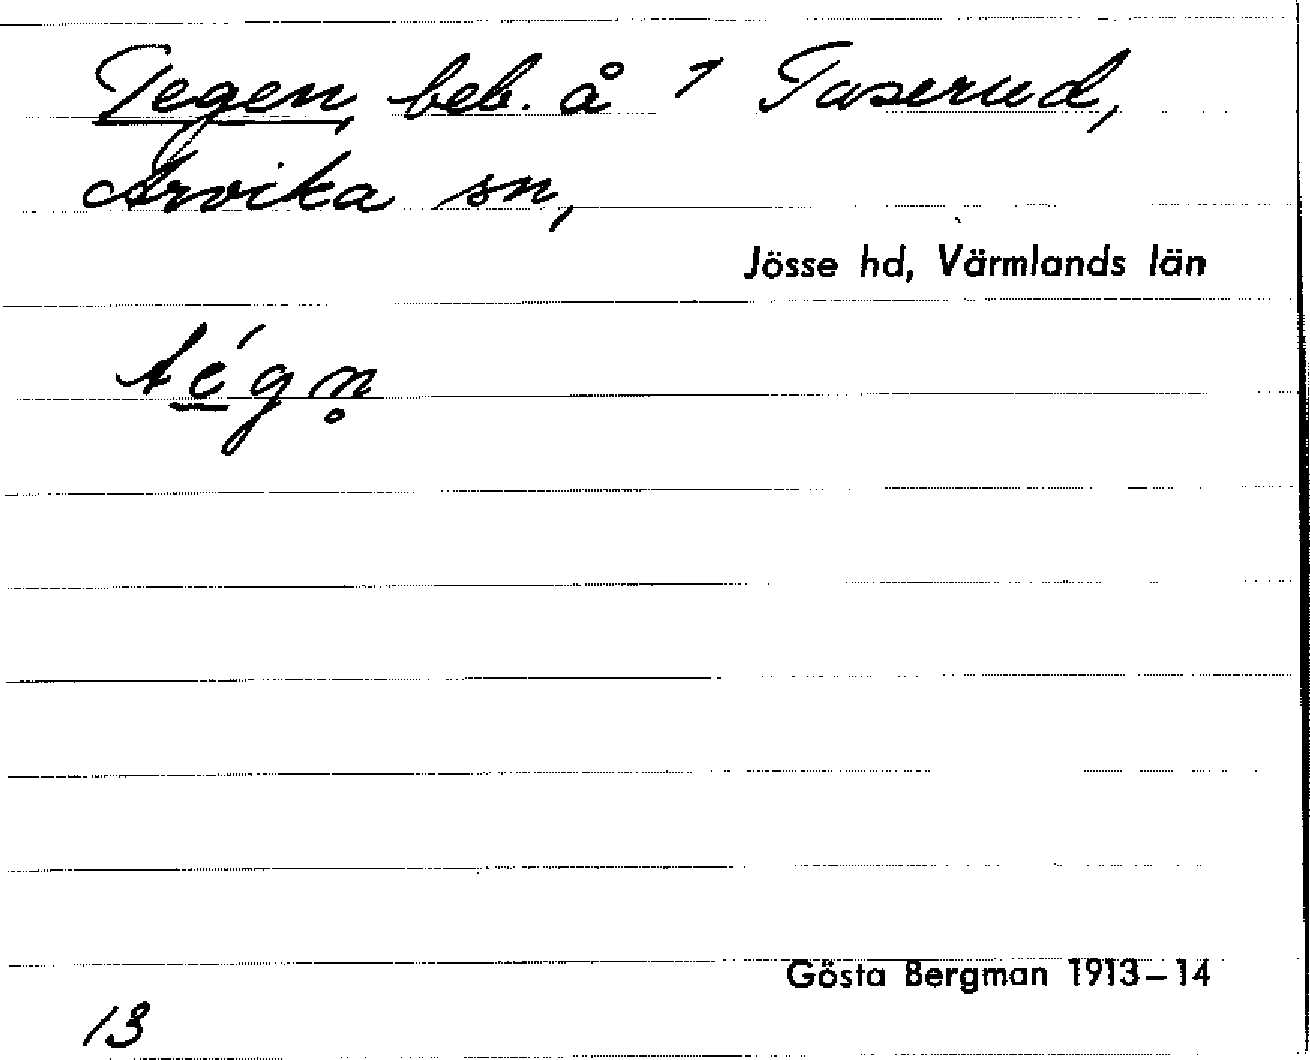 Tegen, beb. å 1 Taserud,
Arvika sn,
Jösse hd, Värmlands län
tég̣n̥
Gösta Bergman 1913–14
13